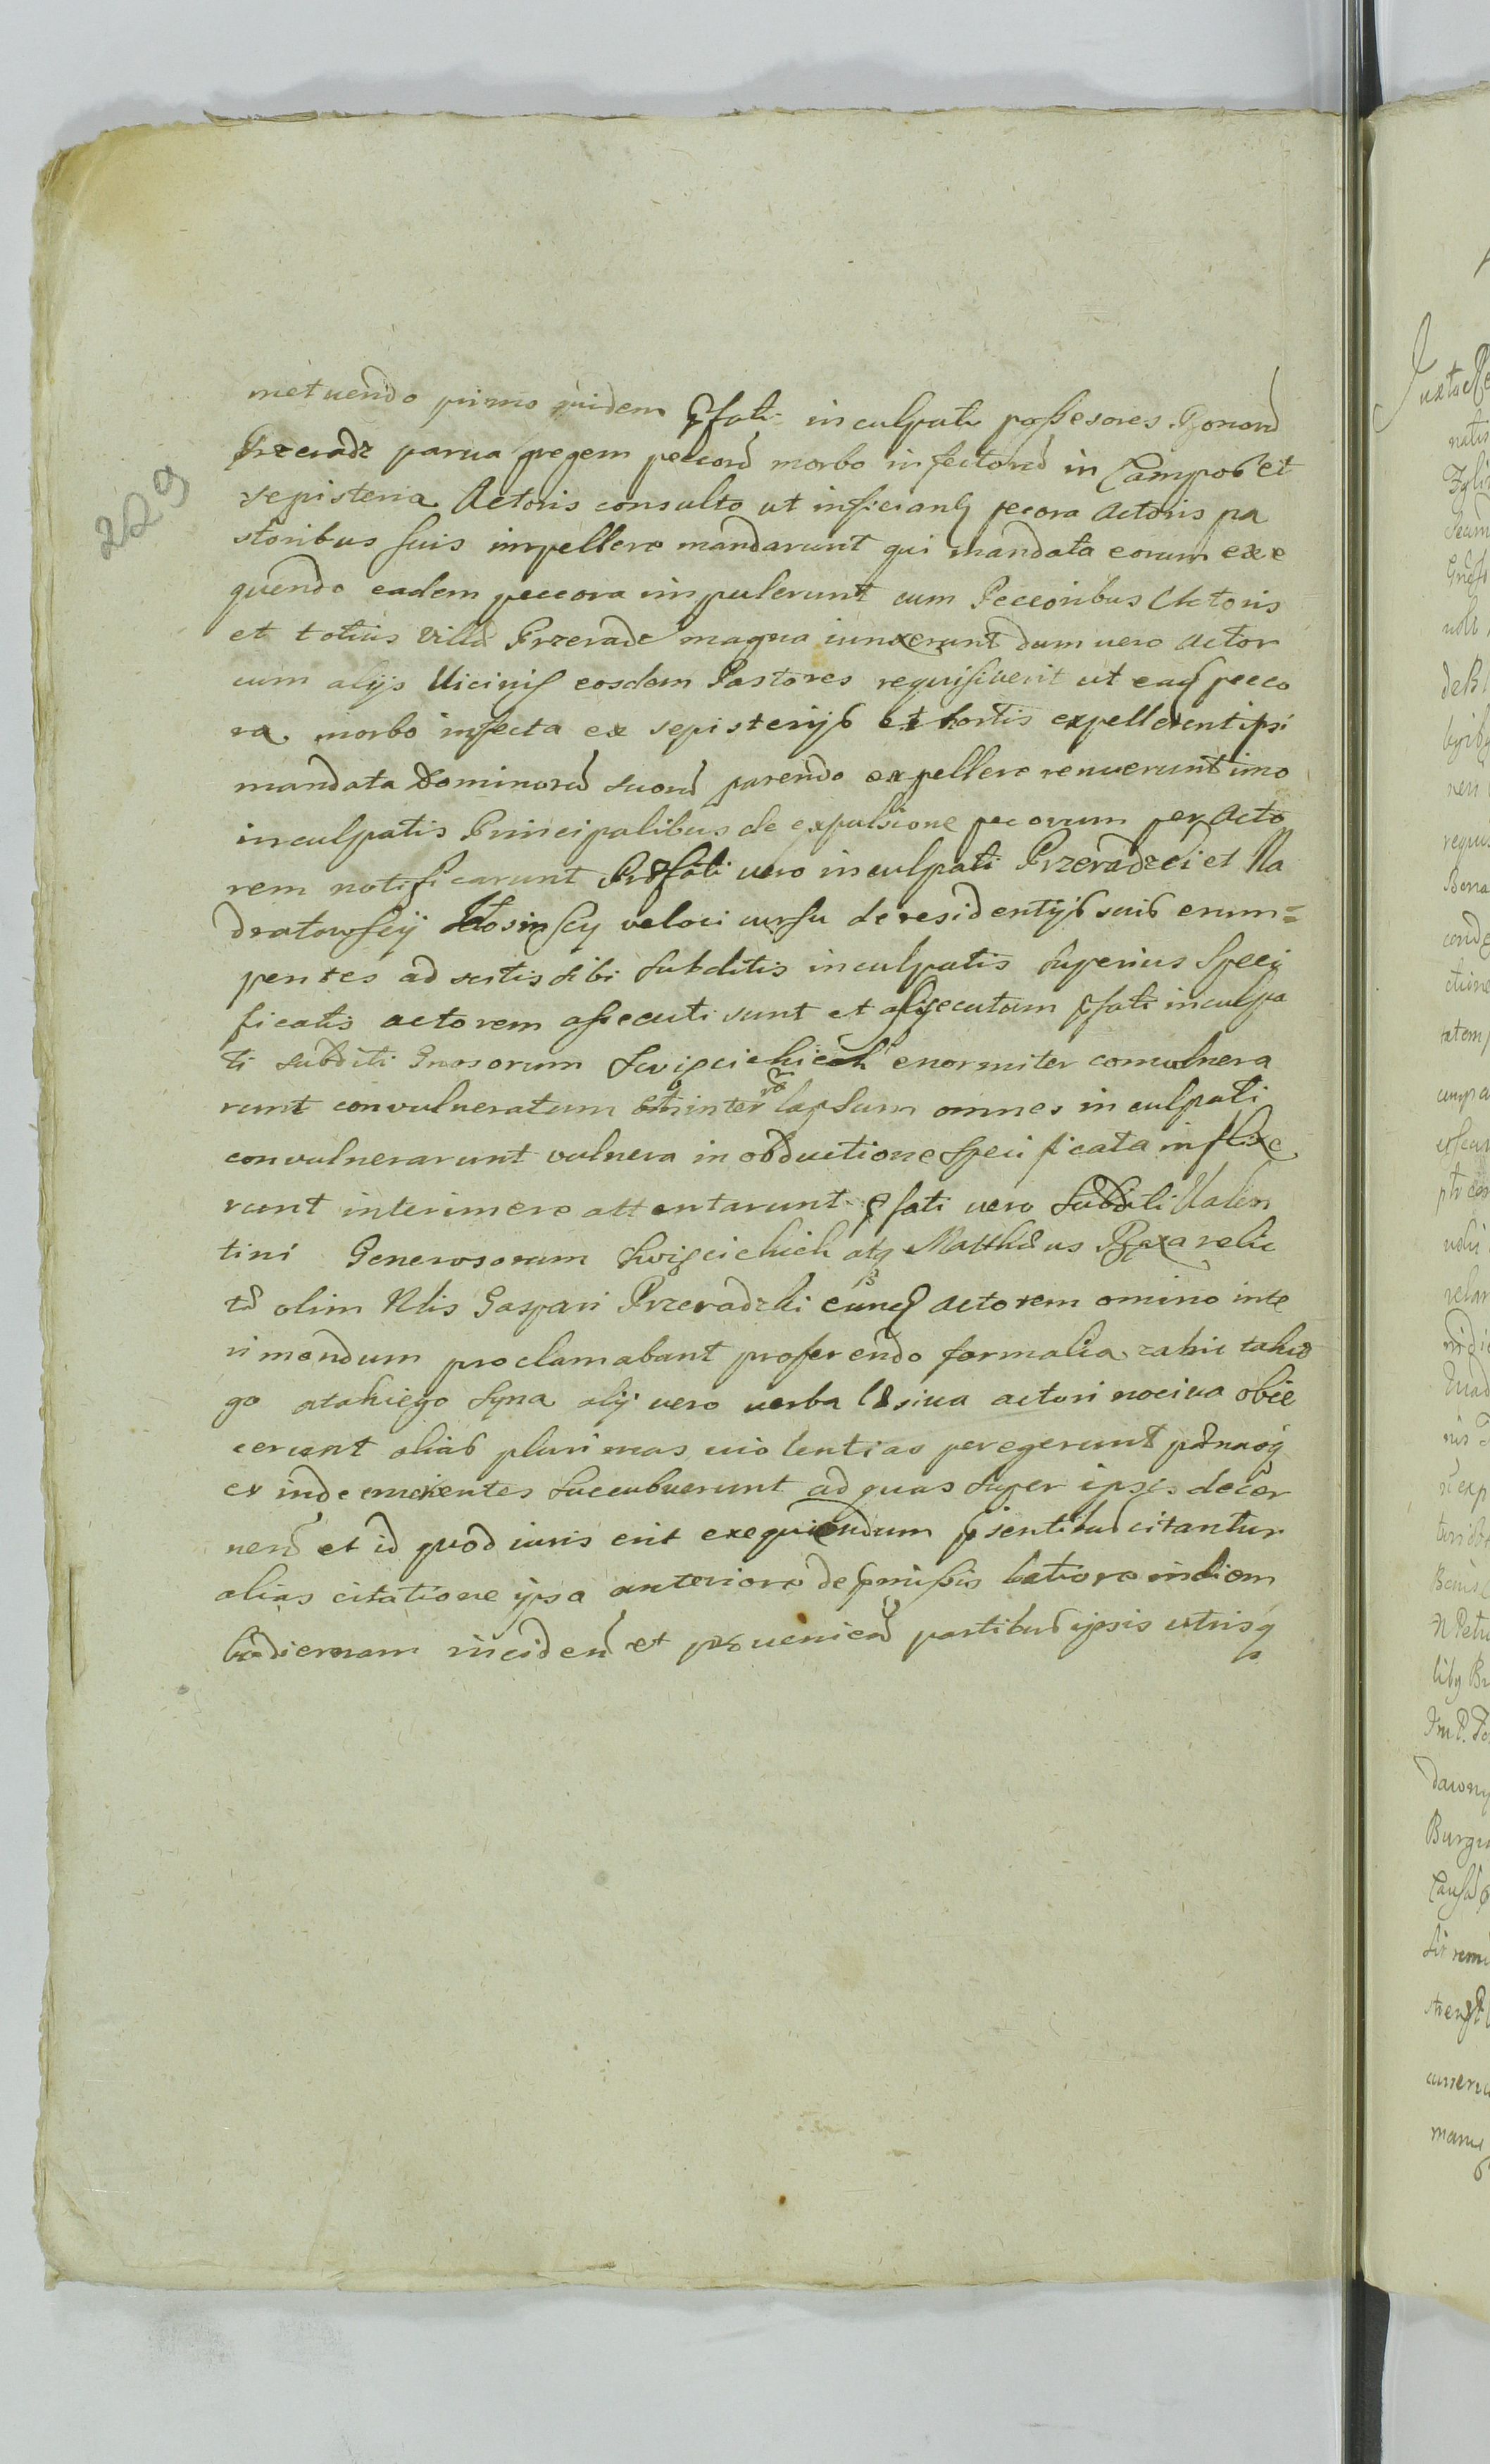 229
metuendo primo quidem pfati inculpati possesores Bonord
Przeradz parua gregem peccord morbo infectord in Campos et
sepisteria Actoris consulto ut inficiantq pecora Actoris pa
storibus suis impellere mandarunt qui mandata eorum exe
quendo eadem peccora impulerunt cum Peccoribus Actoris
et totius Villæ Przeradz magna iunxerunt dum uero Actor
cum alijs Uicinis eosdem Pastores requisiuerit ut eadq pecco
ra morbo infecta ex sepisterijs et hortis expellerent ipsi
mandata Dominord suord parendo expellere renuerunt imo
inculpatis Principalibus de expulsione pecorum per Acto
rem notificarunt Præfati uero inculpati Przeradzci et Na
dratowscij Kosinscy veloci cursu de residentijs suis erum=
pentes ad scitis sibi subditis inculpatis superius speci
ficatis actorem assecuti sunt et assecutum pfati inculpa
ti subditi Gnosorum Swięcichich enormiter conuulnera
runt convulneratum inter lapsum omnes inculpati
convulnerarunt vulnera in obductione specificata inflixe
runt interimere attentarunt pfati uero subditi Ualen
tini Generosorum Swięcichich atq Matthæus relic
tæ olim Nlis Gaspari Przeradzki eundq actorem omino inte
rimendum proclamabant proferendo formalia zabic takie
go otakiego Syna alij uero uerba læsiua actori nociua obie
cerunt alias plurimas uiolentias peregerunt pænasq
ex inde emerentes succubuerunt ad quas super ipsis decer
nend et id quod iuris erit exequiendum psentibus citantur
alias citatione ipsa anteriore de pmissis latiore in diem
hodiernam inciden et proueniend partibus ipsis utrisq